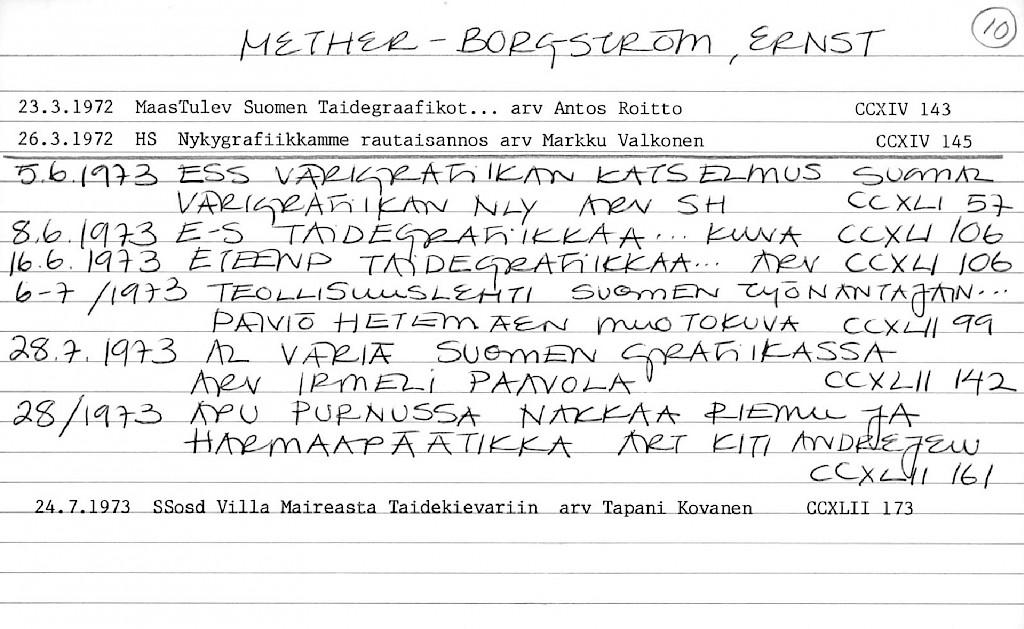 10
METHER-BORGSTRÖM, ERNST
23.3.1972 MaasTulev Suomen Taidegraafikot... arv Antos Roitto CCXIV 143
26.3.1972 HS Nykygrafiikkamme rautaisannos arv Markku Valkonen CCXIV 145
5.6.1973 ESS VÄRIGRAFIIKAN KATSELMUS SUOMAL
VÄRIGRAFIIKAN NLY ARV SH CCXLI 57
8.6.1973 E-S TAIDEGRAFIIKKAA... KUVA CCXLI 106
16.6.1973 ETEENP TAIDEGRAFIIKKAA... ARV CCXLI 106
6-7/1973 TEOLLISUUSLEHTI SUOMEN TYÖNANTAJAIN...
PÄIVIÖ HETEMÄEN MUOTOKUVA CCXLII 99
28.7.1973 AL VÄRIÄ SUOMEN GRAFIIKASSA
ARV IRMELI PAAVOLA CCXLII 142
28/1973 APU PURNUSSA NAKKAA RIEMU JA
HARMAAPÄÄTIKKA ART KITI ANDREJEW
CCXLII 161
24.7.1973 SSosd Villa Maireasta Taidekievariin arv Tapani Kovanen CCXLII 173